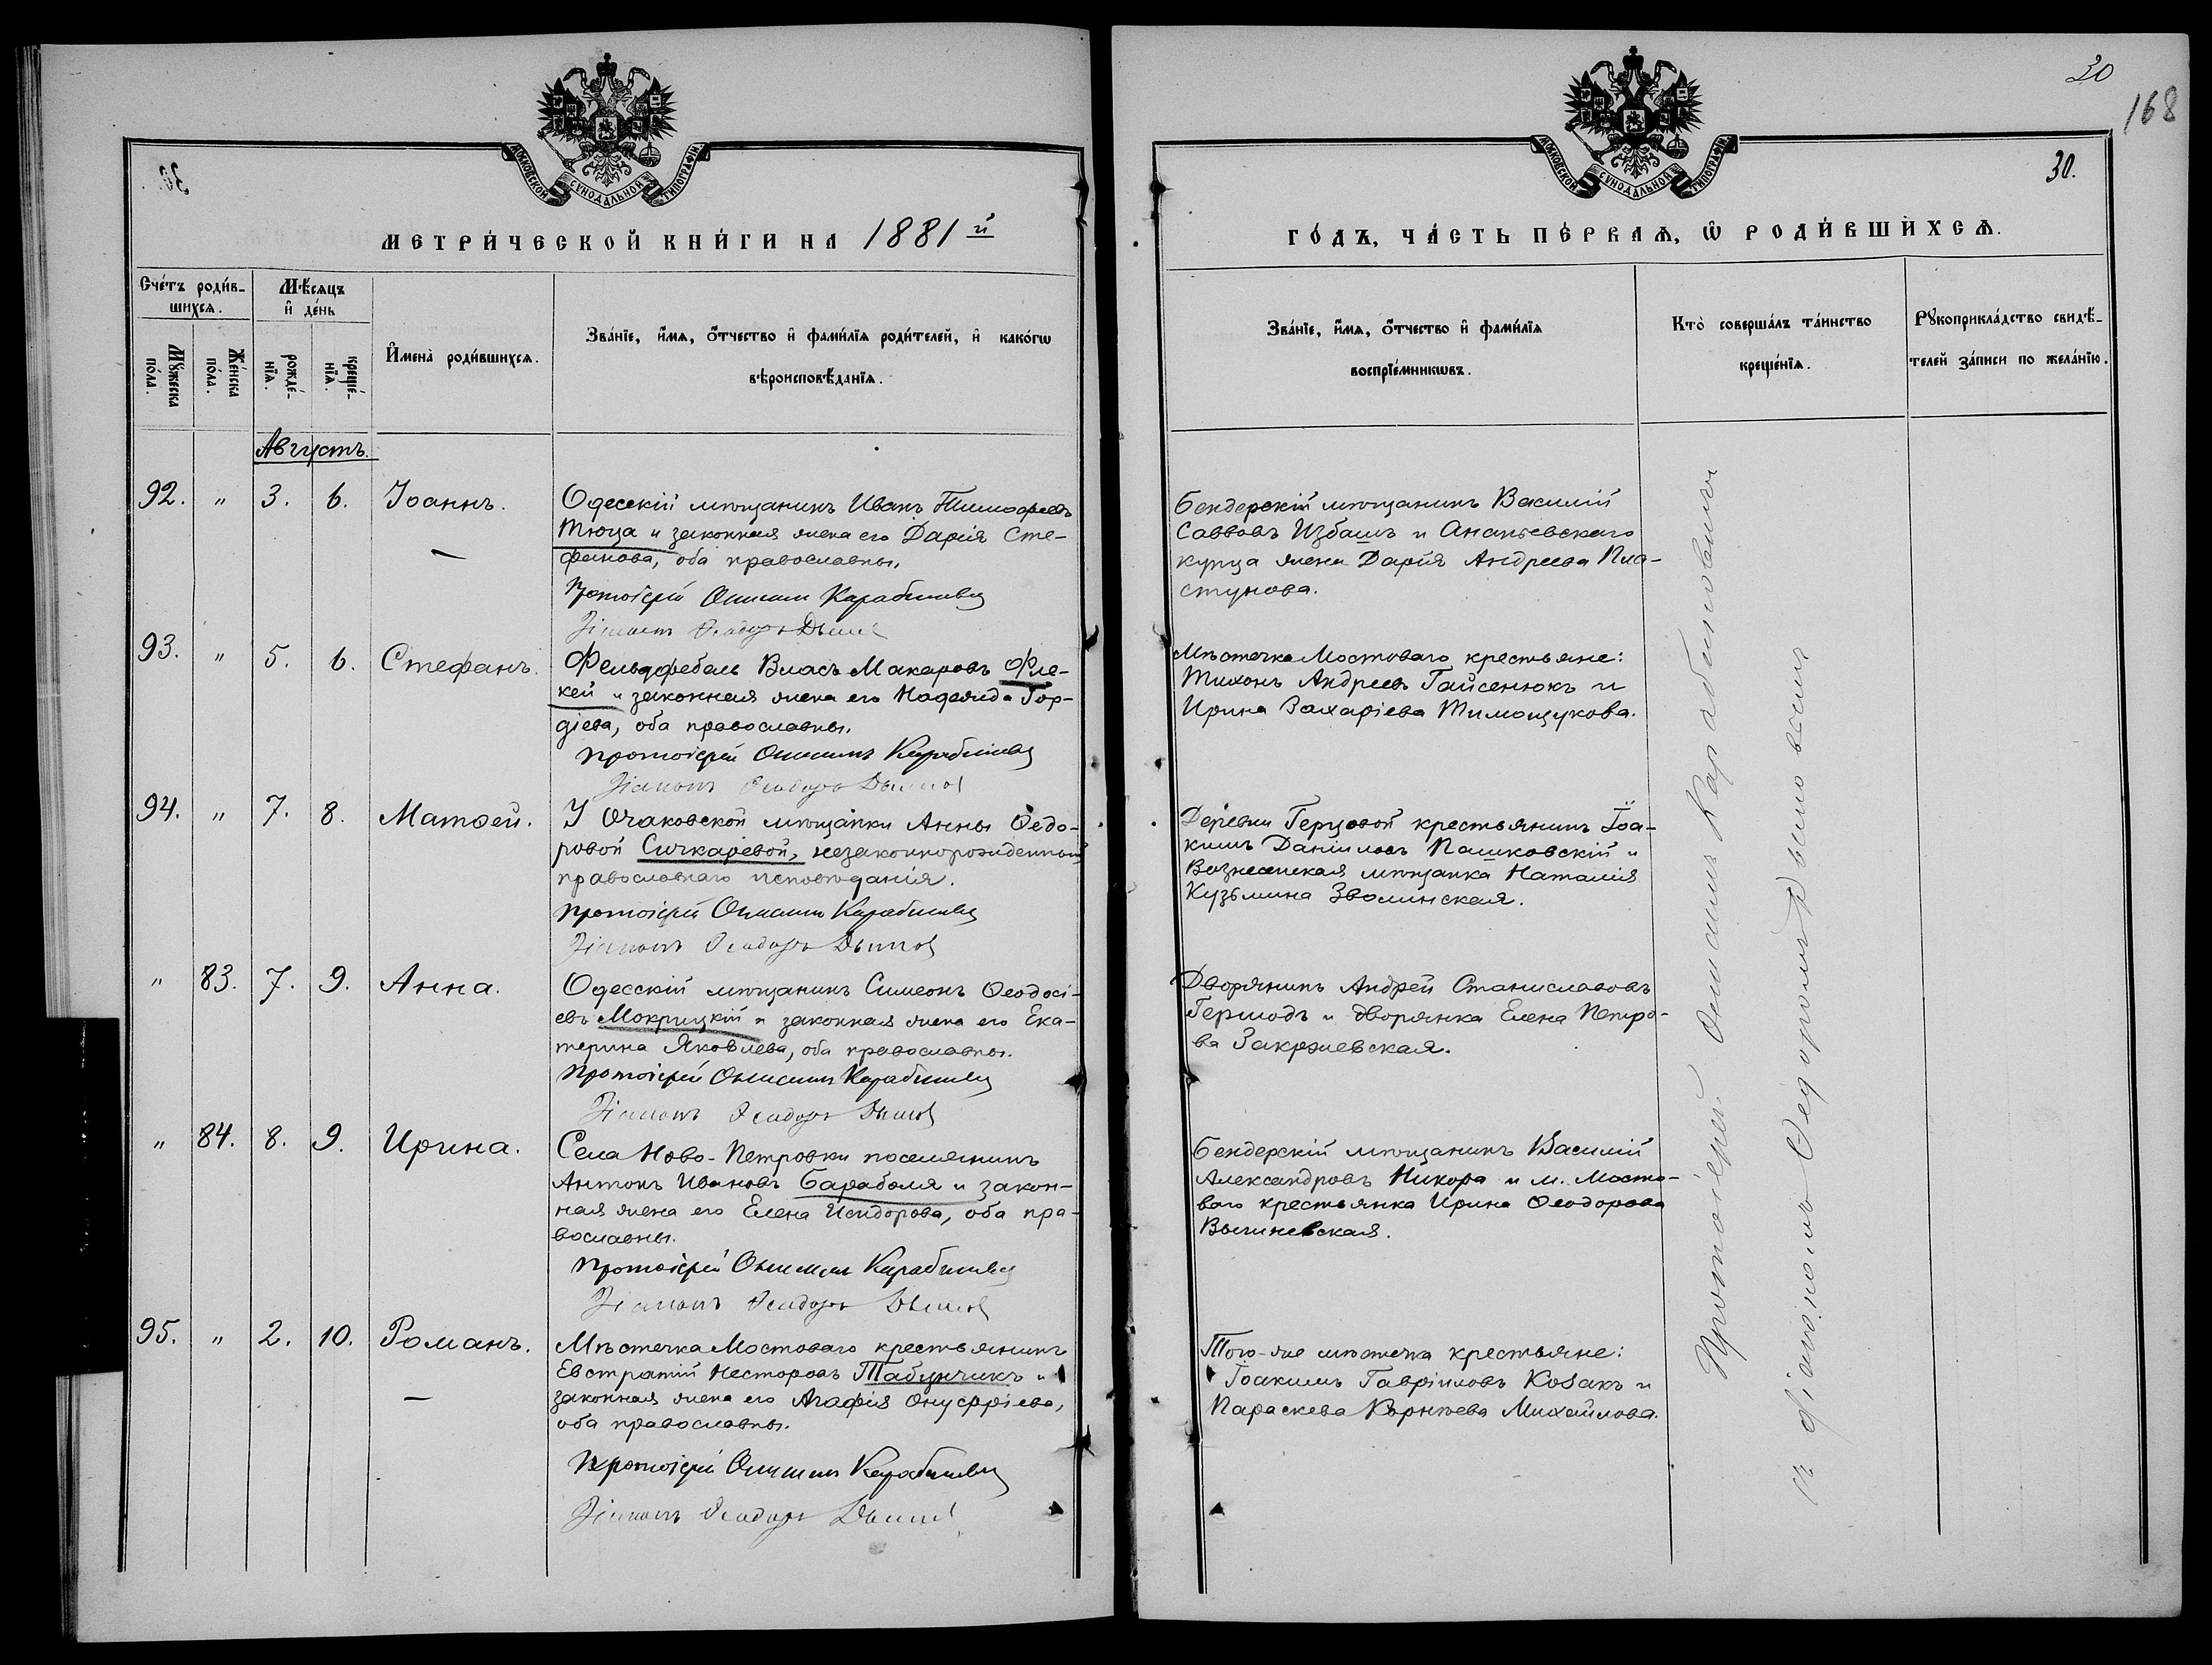 МОСКОВСКОЙ СѴНОДАЛЬНОЙ ТИПОГРАФІИ
МЕТРИ́ЧЕСКОЙ КНИ́ГИ НА 1881й
Сче́тъ роди́в-
шихсѧ.
Мѣ́сѧцъ
и҆ де́нь
Мꙋ́жеска
по́ла.
Же́нска
по́ла.
рожде́-
нїѧ.
креще́-
нїѧ.
И҆мена̀ роди́вшихсѧ.
Зва́нїе, и҆́мѧ, ѻ҆́тчество и҆ фами́лїѧ роди́телей, и҆ како́гѡ
вѣроисповѣ́данїѧ.
Августъ.
92. " 3. 6. Іоаннъ.
Одесскій мѣщанинъ Иванъ Тимоѳеевъ
Тюца и законная жена его Дарія Сте-
фанова, оба православны.
Протоіерей Онисимъ Карабиновичъ
Діаконъ Ѳеодоръ
93. " 5. 6. Стефанъ.
Фельдфебель Власъ Макаровъ Фле-
кей и законная жена его Надежда Гор-
діева, оба православны.
Протоіерей Онисимъ Карабиновичъ
Діаконъ Ѳеодоръ
94. " 7. 8. Матѳей.
У Очаковской мѣщанки Анны Ѳедо-
ровой Сичкаревой, незаконнорожденный
православнаго исповѣданія.
Протоіерей Онисимъ Карабиновичъ
Діаконъ Ѳеодоръ
" 83. 7. 9. Анна.
Одесскій мѣщанинъ Симеонъ Ѳеодосі-
евъ Мокрицкій и законная жена его Ека-
терина Яковлева, оба православны.
Протоіерей Онисимъ Карабиновичъ
Діаконъ Ѳеодоръ
" 84. 8. 9. Ирина.
Села Ново-Петровки поселянинъ
Антонъ Ивановъ Бараболя и закон-
ная жена его Елена Исидорова, оба пра-
вославны.
Протоіерей Онисимъ Карабиновичъ
Діаконъ Ѳеодоръ
95. " 2. 10. Романъ.
Мѣстечка Мостоваго крестьянинъ
Евстратій Несторовъ Табунчикъ и
законная жена его Агафія Онуфріева,
оба православны.
Протоіерей Онисимъ Карабиновичъ
Діаконъ Ѳеодоръ
30
168
30.
МОСКОВСКОЙ СѴНОДАЛЬНОЙ ТИПОГРАФІИ
ГО́ДЪ, ЧА́СТЬ ПЕ́РВАѦ, Ѡ҆ РОДИ́ВШИХСѦ.
Зва́нїе, и҆́мѧ, ѻ҆́тчество и҆ фами́лїѧ
воспрїе́мникѡвъ.
Кто̀ соверша́лъ та́инство
креще́нїѧ.
Рꙋкоприкла́дство свидѣ́-
телей за́писи по жела́нїю.
Бендерскій мѣщанинъ Василій
Саввовъ Избашъ и Ананьевскаго
купца жена Дарія Андреева Пла-
стунова.
Мѣстечка Мостоваго крестьяне:
Тихонъ Андреевъ Гайсенюкъ и
Ирина Захаріева Тимощукова.
Деревни Герцовой крестьянинъ Іоа-
кимъ Даніиловъ Пашковскій и
Вознесенская мѣщанка Наталія
Кузьмина Зволинская.
Дворянинъ Андрей Станиславовъ
Гершодъ и дворянка Елена Петро-
ва Закржевская.
Бендерскій мѣщанинъ Василій
Александровъ Никора и м. Мосто-
ваго крестьянка Ирина Ѳеодорова
Вышневская.
Того-же мѣстечка крестьяне:
Іоакимъ Гавріиловъ Козакъ и
Параскева Корнѣева Михайлова.
Протоіерей Онисимъ Карабиновичъ
съ діакономъ Ѳедоромъ